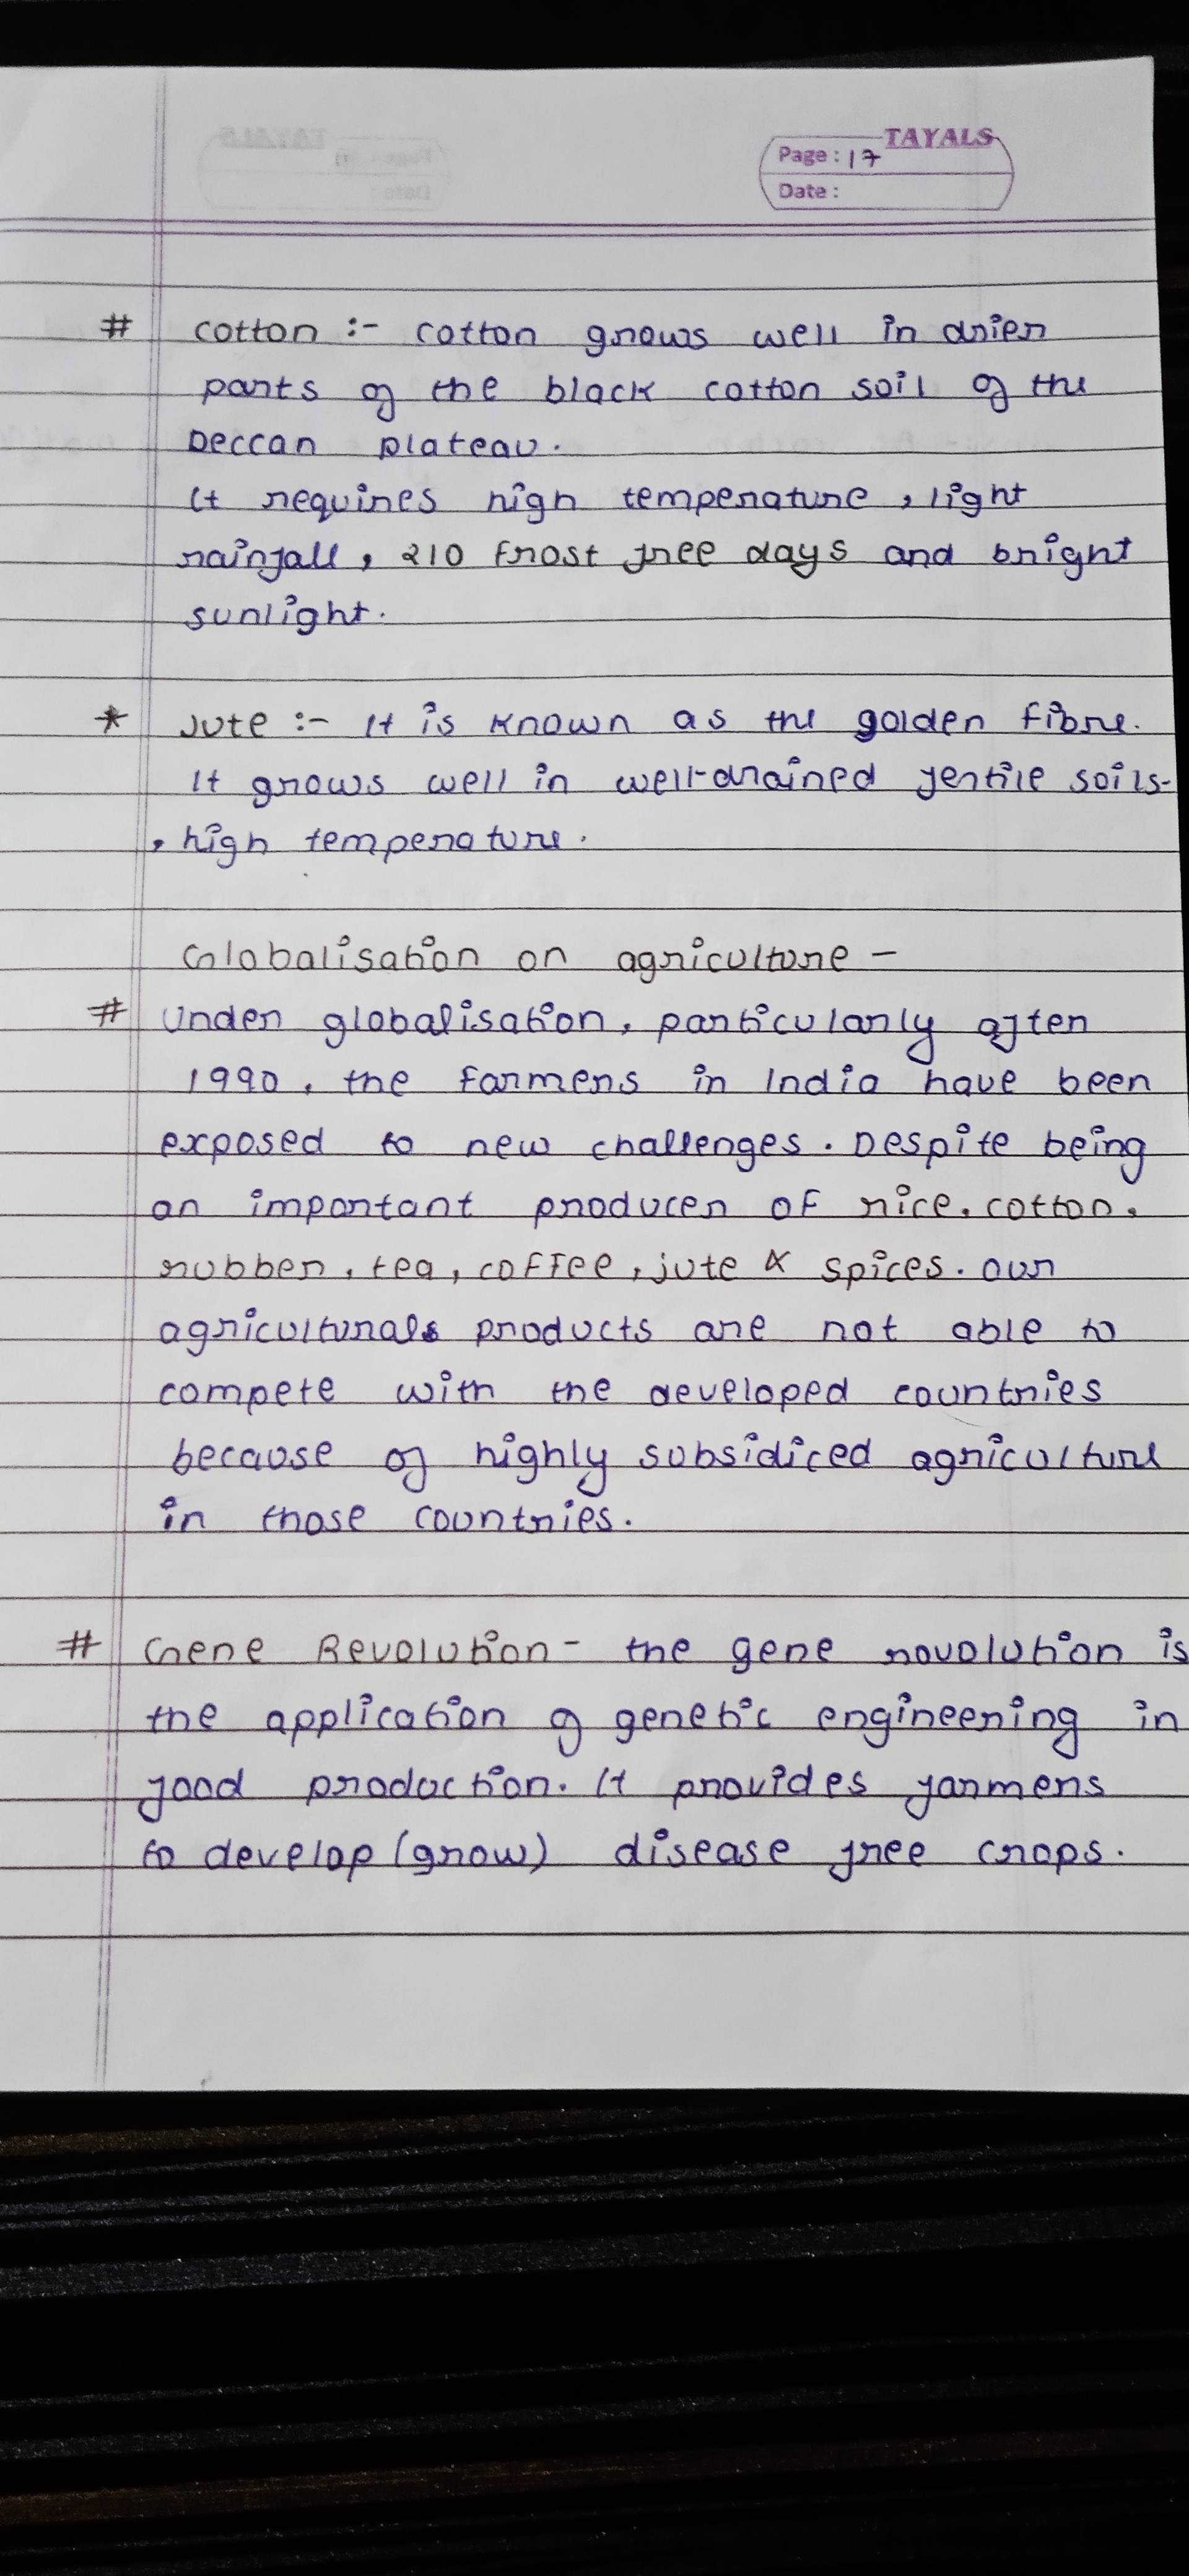 TAYALS
Page : 17
Date :
# cotton :- cotton grows well in drier
parts of the black cotton soil of the
Deccan plateau.
It requires high temperature, light
rainfall, 210 frost free days and bright
sunlight.
* Jute :- It is known as the golden fibre.
It grows well in well-drained fertile soils-
, high temperature.
Globalisation on agriculture -
# Under globalisation, particularly after
1990, the farmers in India have been
exposed to new challenges. Despite being
an important producer of rice, cotton,
rubber, tea, coffee, jute & spices. our
agriculturals products are not able to
compete with the developed countries
because of highly subsidiced agriculture
in those countries.
# Gene Revolution - the gene rovolution is
the application of genetic engineering in
food production. It provides farmers
to develop (grow) disease free crops.